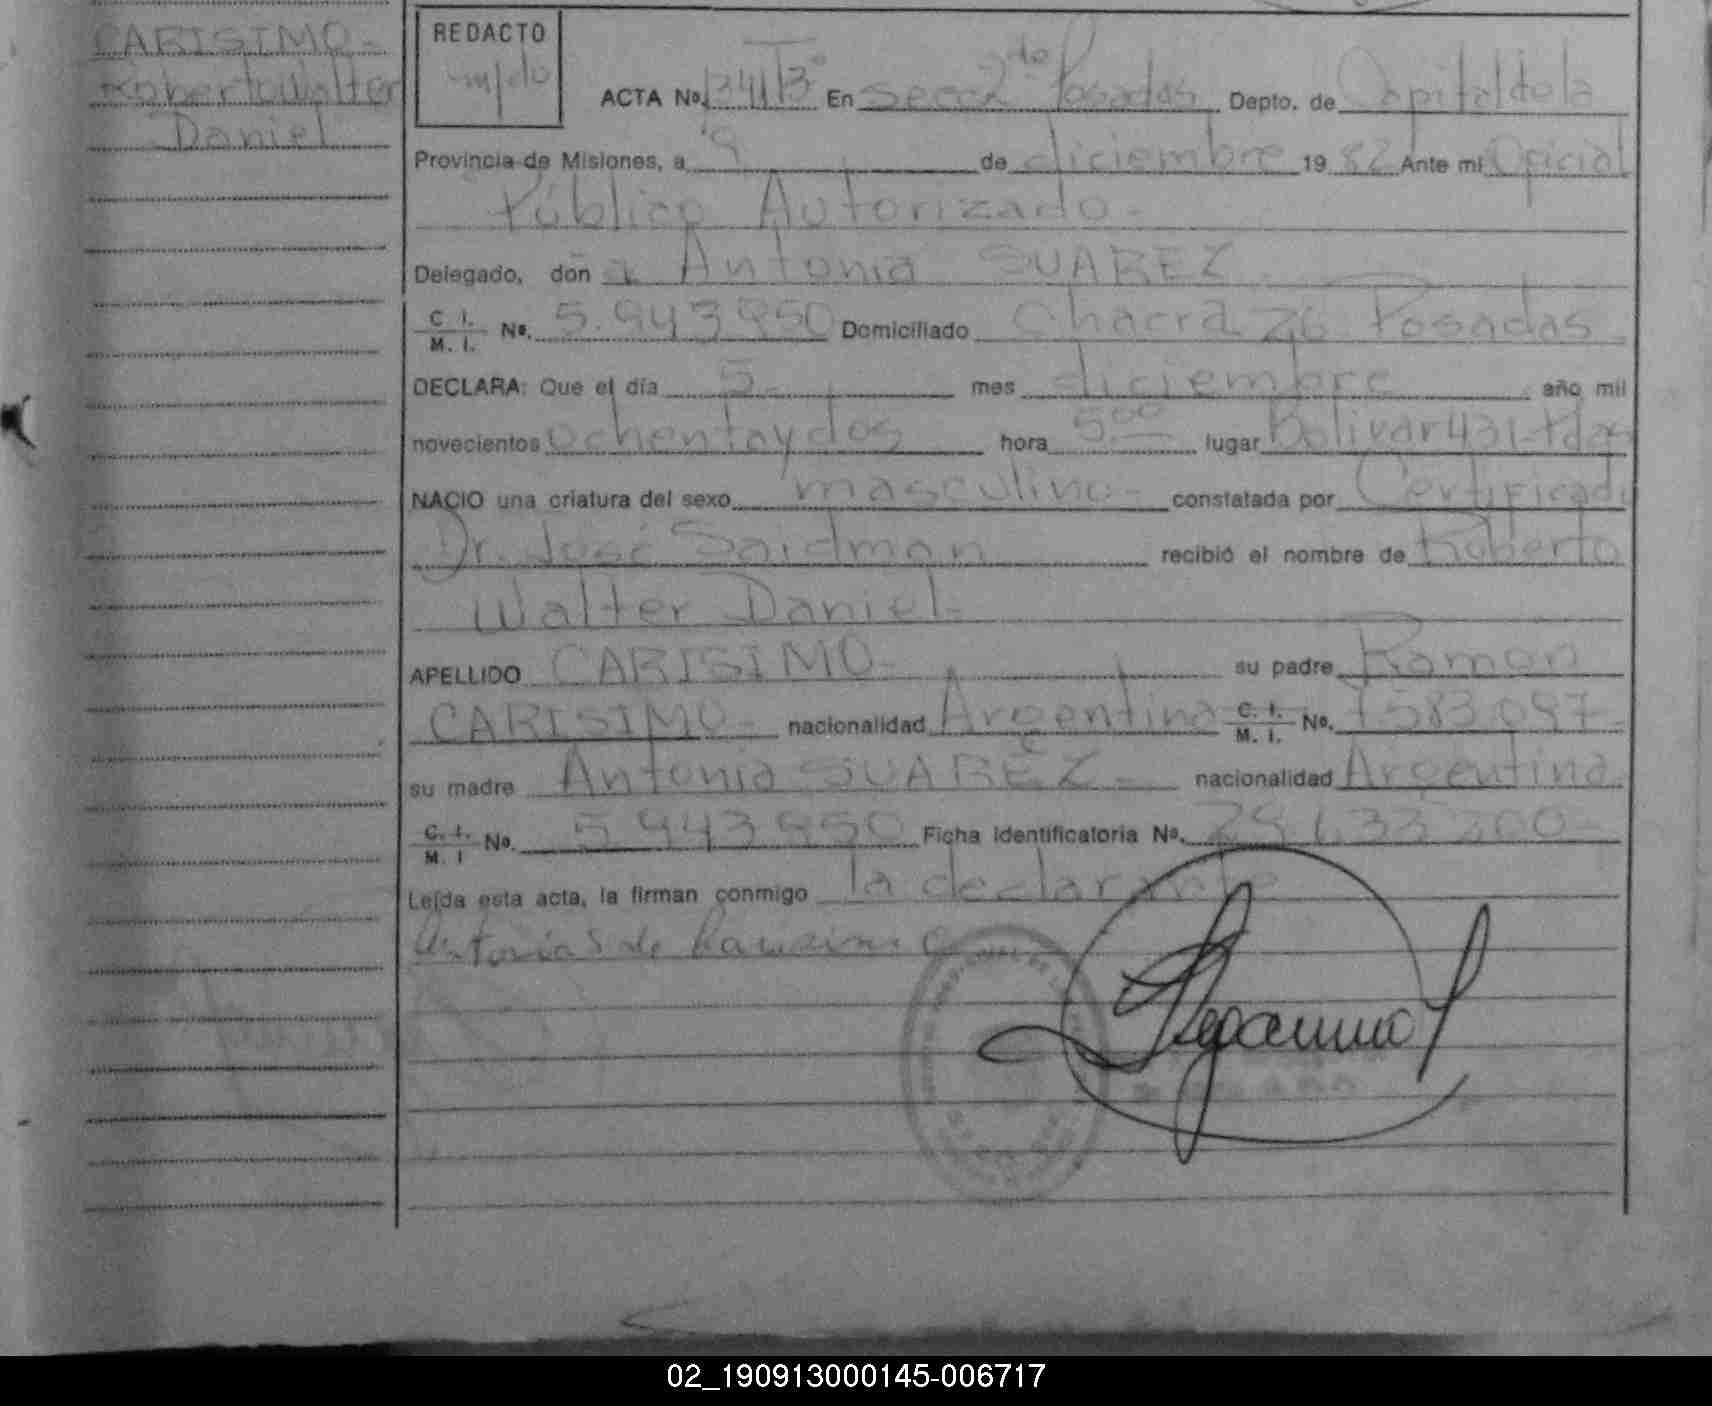 CARISIMO-
Roberto Walter
Daniel
REDACTO
m/do
ACTA No. 341 Tº3 En Secc 2da Posadas Depto. de Capital de la
Provincia de Misiones, a 9 de diciembre 19 82 Ante mi Oficial
Público Autorizado-
Delegado, don a Antonia SUAREZ
C. I. / M. I. Nº. 5.943.950 Domiciliado Chacra 26 Posadas
DECLARA: Que el día 5- mes diciembre año mil
novecientos ochenta y dos hora 5.00 lugar Bolivar 431-Pdas
NACIO una criatura del sexo masculino- constatada por Certificado
Dr. José Saidman recibió el nombre de Roberto
Walter Daniel-
APELLIDO CARISIMO- su padre Ramon
CARISIMO- nacionalidad Argentina C. I. / M. I. Nº. 7583.097-
su madre Antonia SUAREZ- nacionalidad Argentina
C. I. / M. I Nº. 5.943.950 Ficha Identificatoria Nº. 29.633.300-
Leída esta acta, la firman conmigo la declarante
Antonia S de Carisimo
02_190913000145-006717